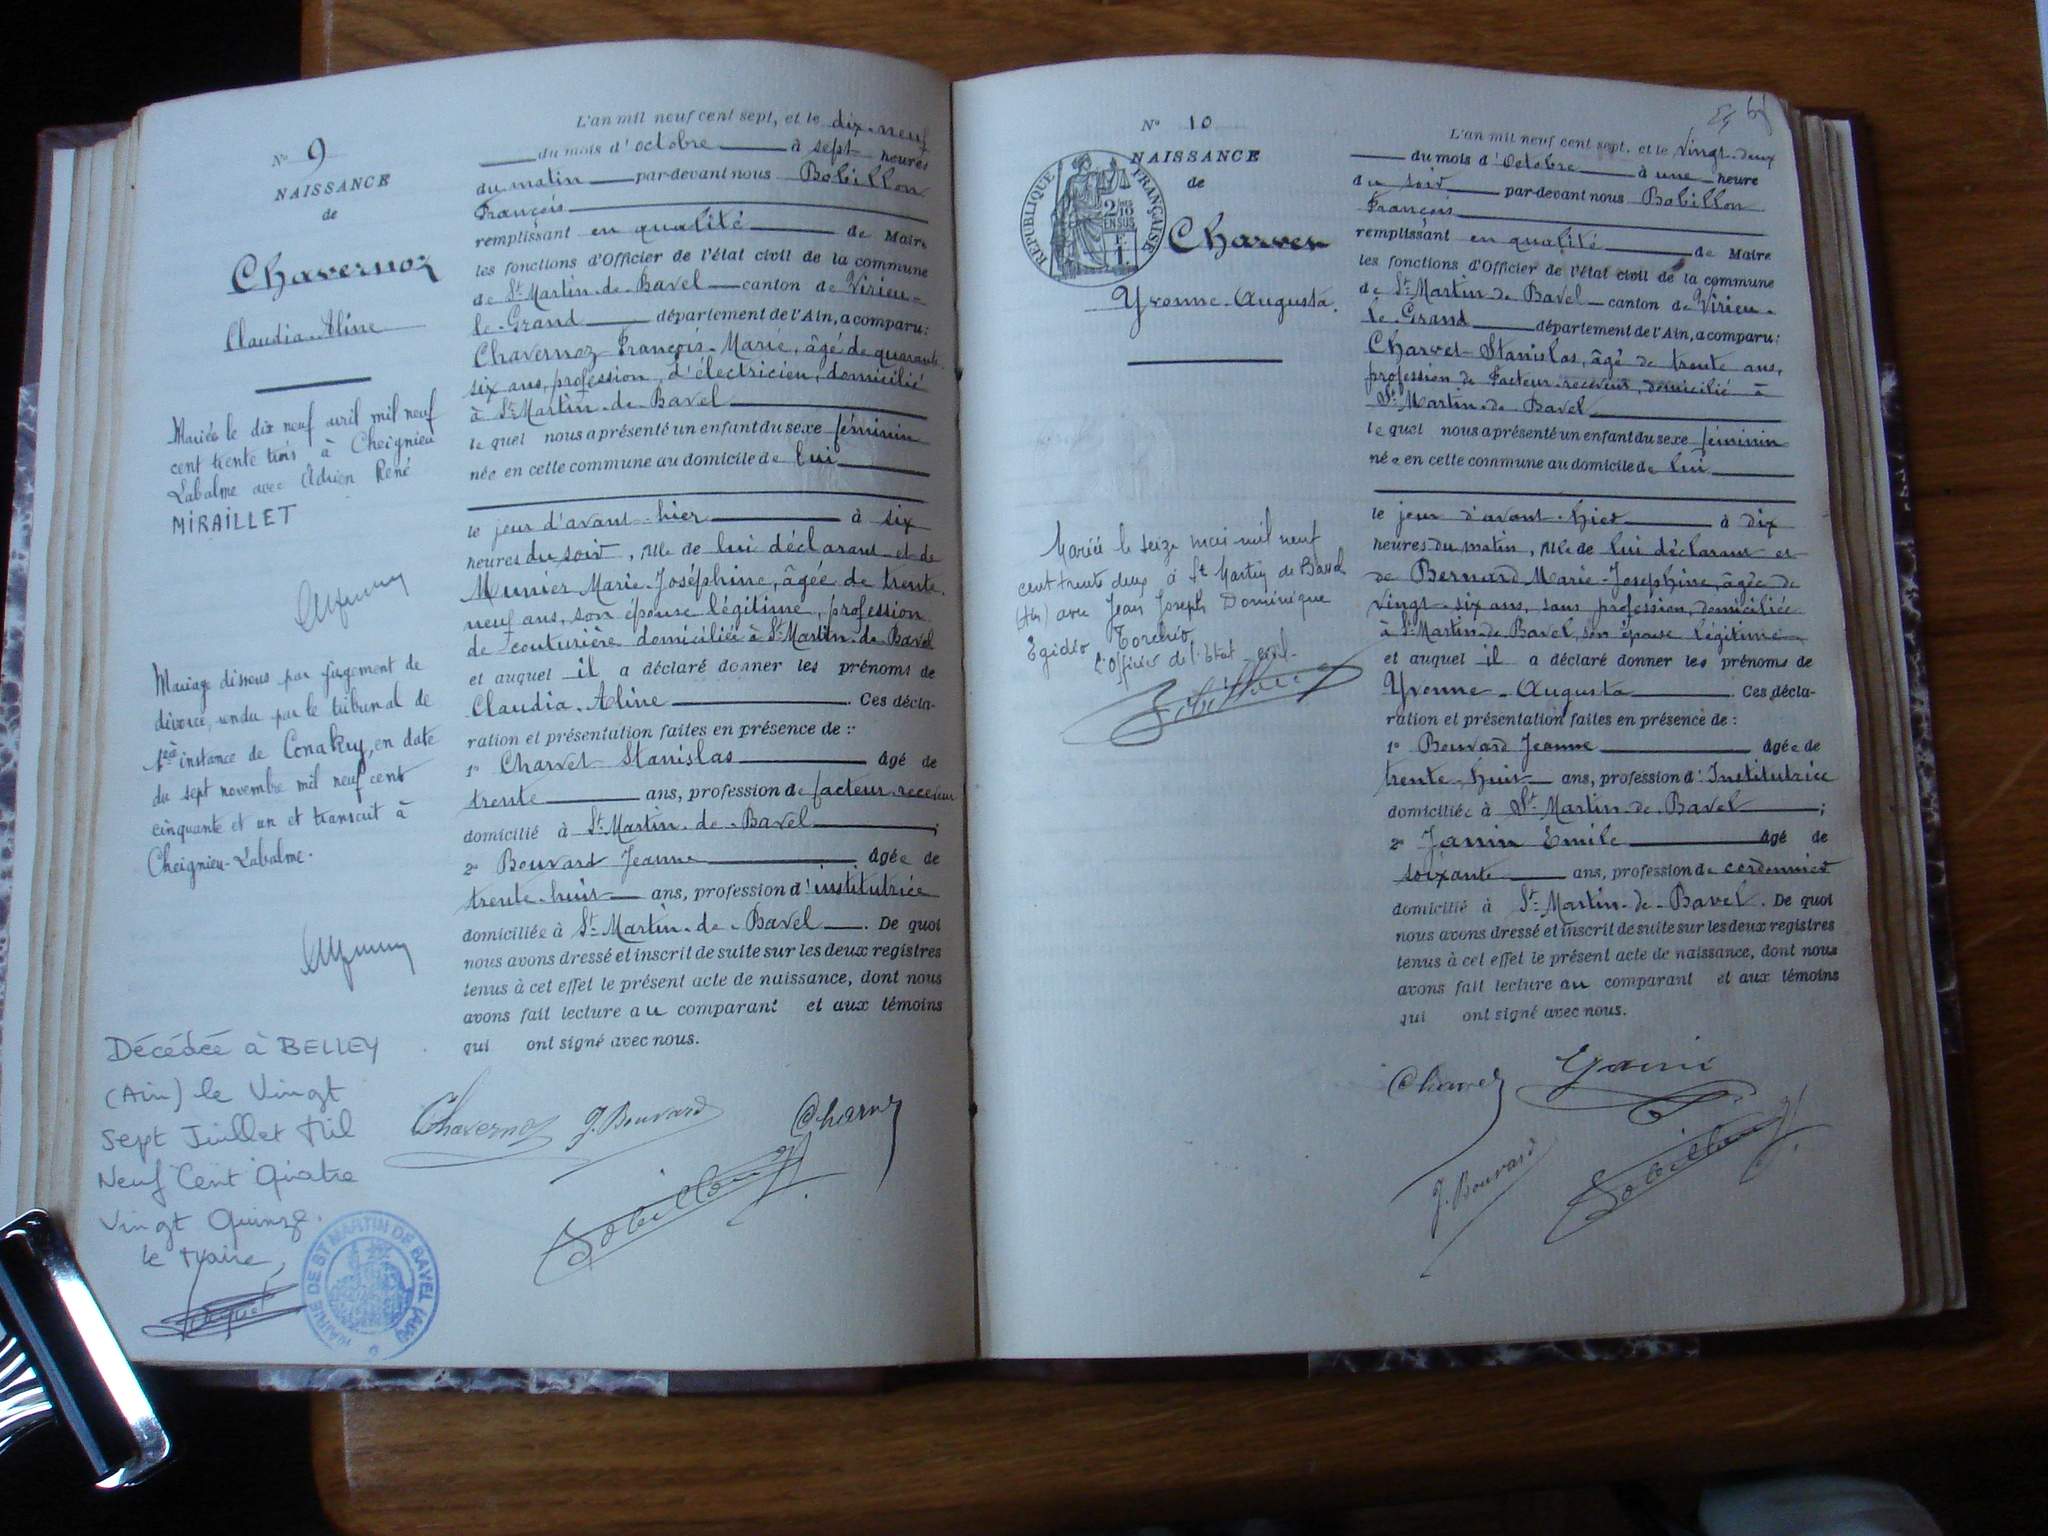 N° 9
NAISSANCE
de
Chavernoz
Claudia-Aline
Mariée le dix neuf avril mil neuf
cent trente trois à Cheignieu
Labalme avec Adrien René
MIRAILLET
Mariage dissous par jugement de
divorce, rendu par le tribunal de
1ère instance de Conakry, en date
du sept novembre mil neuf cent
cinquante et un et transcrit à
Cheignieu-Labalme.
Décédée à BELLEY
(Ain) le Vingt
Sept Juillet Mil
Neuf Cent Quatre
Vingt Quinze.
le Maire,
MAIRIE DE ST MARTIN DE BAVEL (AIN)
L'an mil neuf cent sept, et le dix-neuf
du mois d'octobre à sept heures
du matin par-devant nous Bobillon
François
remplissant en qualité de Maire
les fonctions d'Officier de l'état civil de la commune
de St Martin-de-Bavel canton de Virieu-
le-Grand département de l'Ain, a comparu:
Chavernoz François-Marie, âgé de quarante-
six ans, profession d'électricien, domicilié
à St Martin-de-Bavel
lequel nous a présenté un enfant du sexe féminin
née en cette commune au domicile de lui
le jour d'avant-hier à six
heures du soir, fille de lui déclarant et de
Munier Marie-Joséphine, âgée de trente-
neuf ans, son épouse légitime, profession
de couturière domiciliée à St Martin-de-Bavel
et auquel il a déclaré donner les prénoms de
Claudia-Aline. Ces décla-
ration et présentation faites en présence de :
1° Charvet Stanislas âgé de
trente ans, profession de facteur-receveur
domicilié à St Martin-de-Bavel ;
2° Bouvard Jeanne âgée de
trente-huit ans, profession d'institutrice
domiciliée à St Martin-de-Bavel. De quoi
nous avons dressé et inscrit de suite sur les deux registres
tenus à cet effet le présent acte de naissance, dont nous
avons fait lecture au comparant et aux témoins
qui ont signé avec nous.
Chavernoz J. Bouvard Charvet
Bobillon
N° 10
NAISSANCE
de
RÉPUBLIQUE FRANÇAISE
2/10
EN SUS
Charvet
Yvonne-Augusta.
Mariée le seize mai mil neuf
cent trente deux à St Martin de Bavel
avec Jean Joseph Dominique
Egidio Torchio
L'Officier de l'Etat civil
Bobillon
L'an mil neuf cent sept, et le vingt-deux
du mois d'Octobre à une heure
du soir par-devant nous Bobillon
François
remplissant en qualité de Maire
les fonctions d'Officier de l'état civil de la commune
de St Martin-de-Bavel canton de Virieu-
le-Grand département de l'Ain, a comparu:
Charvet Stanislas, âgé de trente ans,
profession de Facteur-receveur, domicilié à
St Martin-de-Bavel
lequel nous a présenté un enfant du sexe féminin
née en cette commune au domicile de lui
le jour d'avant-hier à dix
heures du matin, fille de lui déclarant et
de Bernard Marie-Josephine, âgée de
vingt-six ans, sans profession, domiciliée
à St Martin-de-Bavel, son épouse légitime
et auquel il a déclaré donner les prénoms de
Yvonne-Augusta. Ces décla-
ration et présentation faites en présence de :
1° Bouvard Jeanne âgée de
trente-huit ans, profession d'Institutrice
domiciliée à St Martin-de-Bavel ;
2° Janin Emile âgé de
soixante ans, profession de cordonnier
domicilié à St Martin-de-Bavel. De quoi
nous avons dressé et inscrit de suite sur les deux registres
tenus à cet effet le présent acte de naissance, dont nous
avons fait lecture au comparant et aux témoins
qui ont signé avec nous.
Charvet Janin
J. Bouvard Bobillon